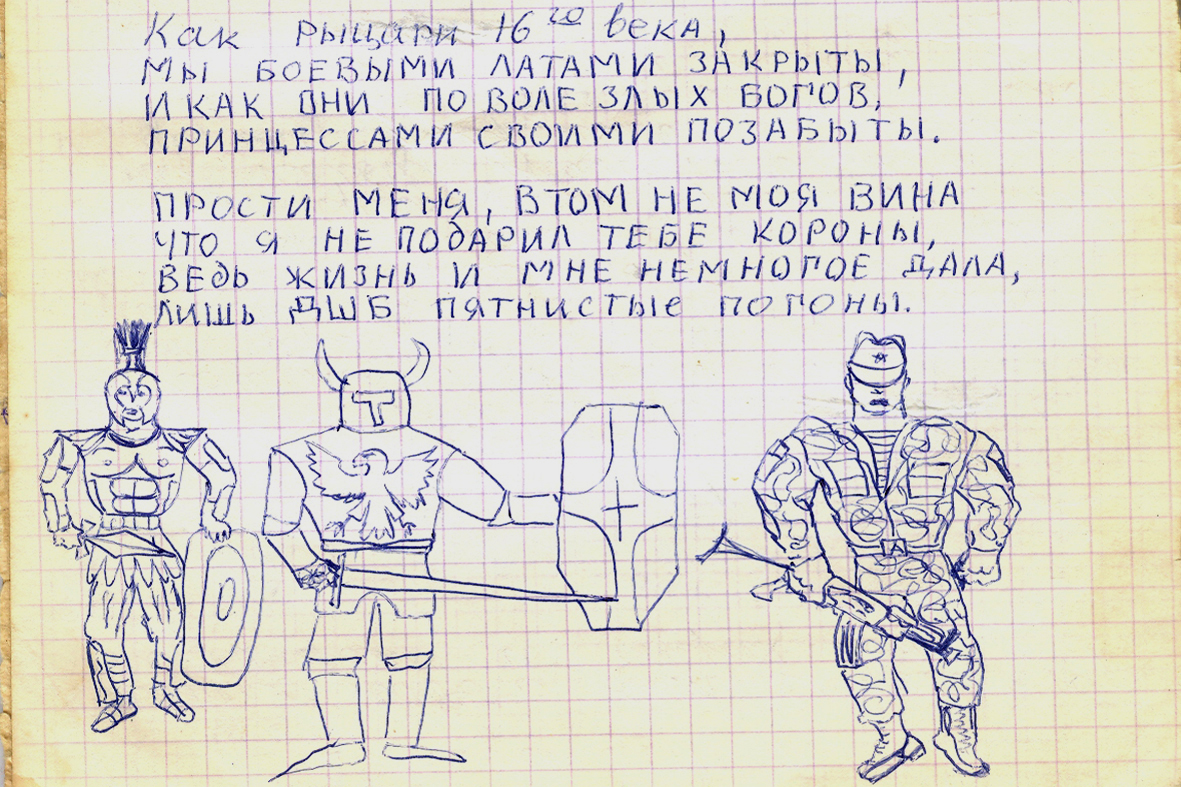 Как рыцари 16го века,
МЫ БОЕВЫМИ ЛАТАМИ ЗАКРЫТЫ,
И КАК ОНИ ПО ВОЛЕ ЗЛЫХ БОГОВ,
ПРИНЦЕССАМИ СВОИМИ ПОЗАБЫТЫ.
ПРОСТИ МЕНЯ, В ТОМ НЕ МОЯ ВИНА
ЧТО Я НЕ ПОДАРИЛ ТЕБЕ КОРОНЫ,
ВЕДЬ ЖИЗНЬ И МНЕ НЕМНОГОЕ ДАЛА,
ЛИШЬ ДШБ ПЯТНИСТЫЕ ПОГОНЫ.